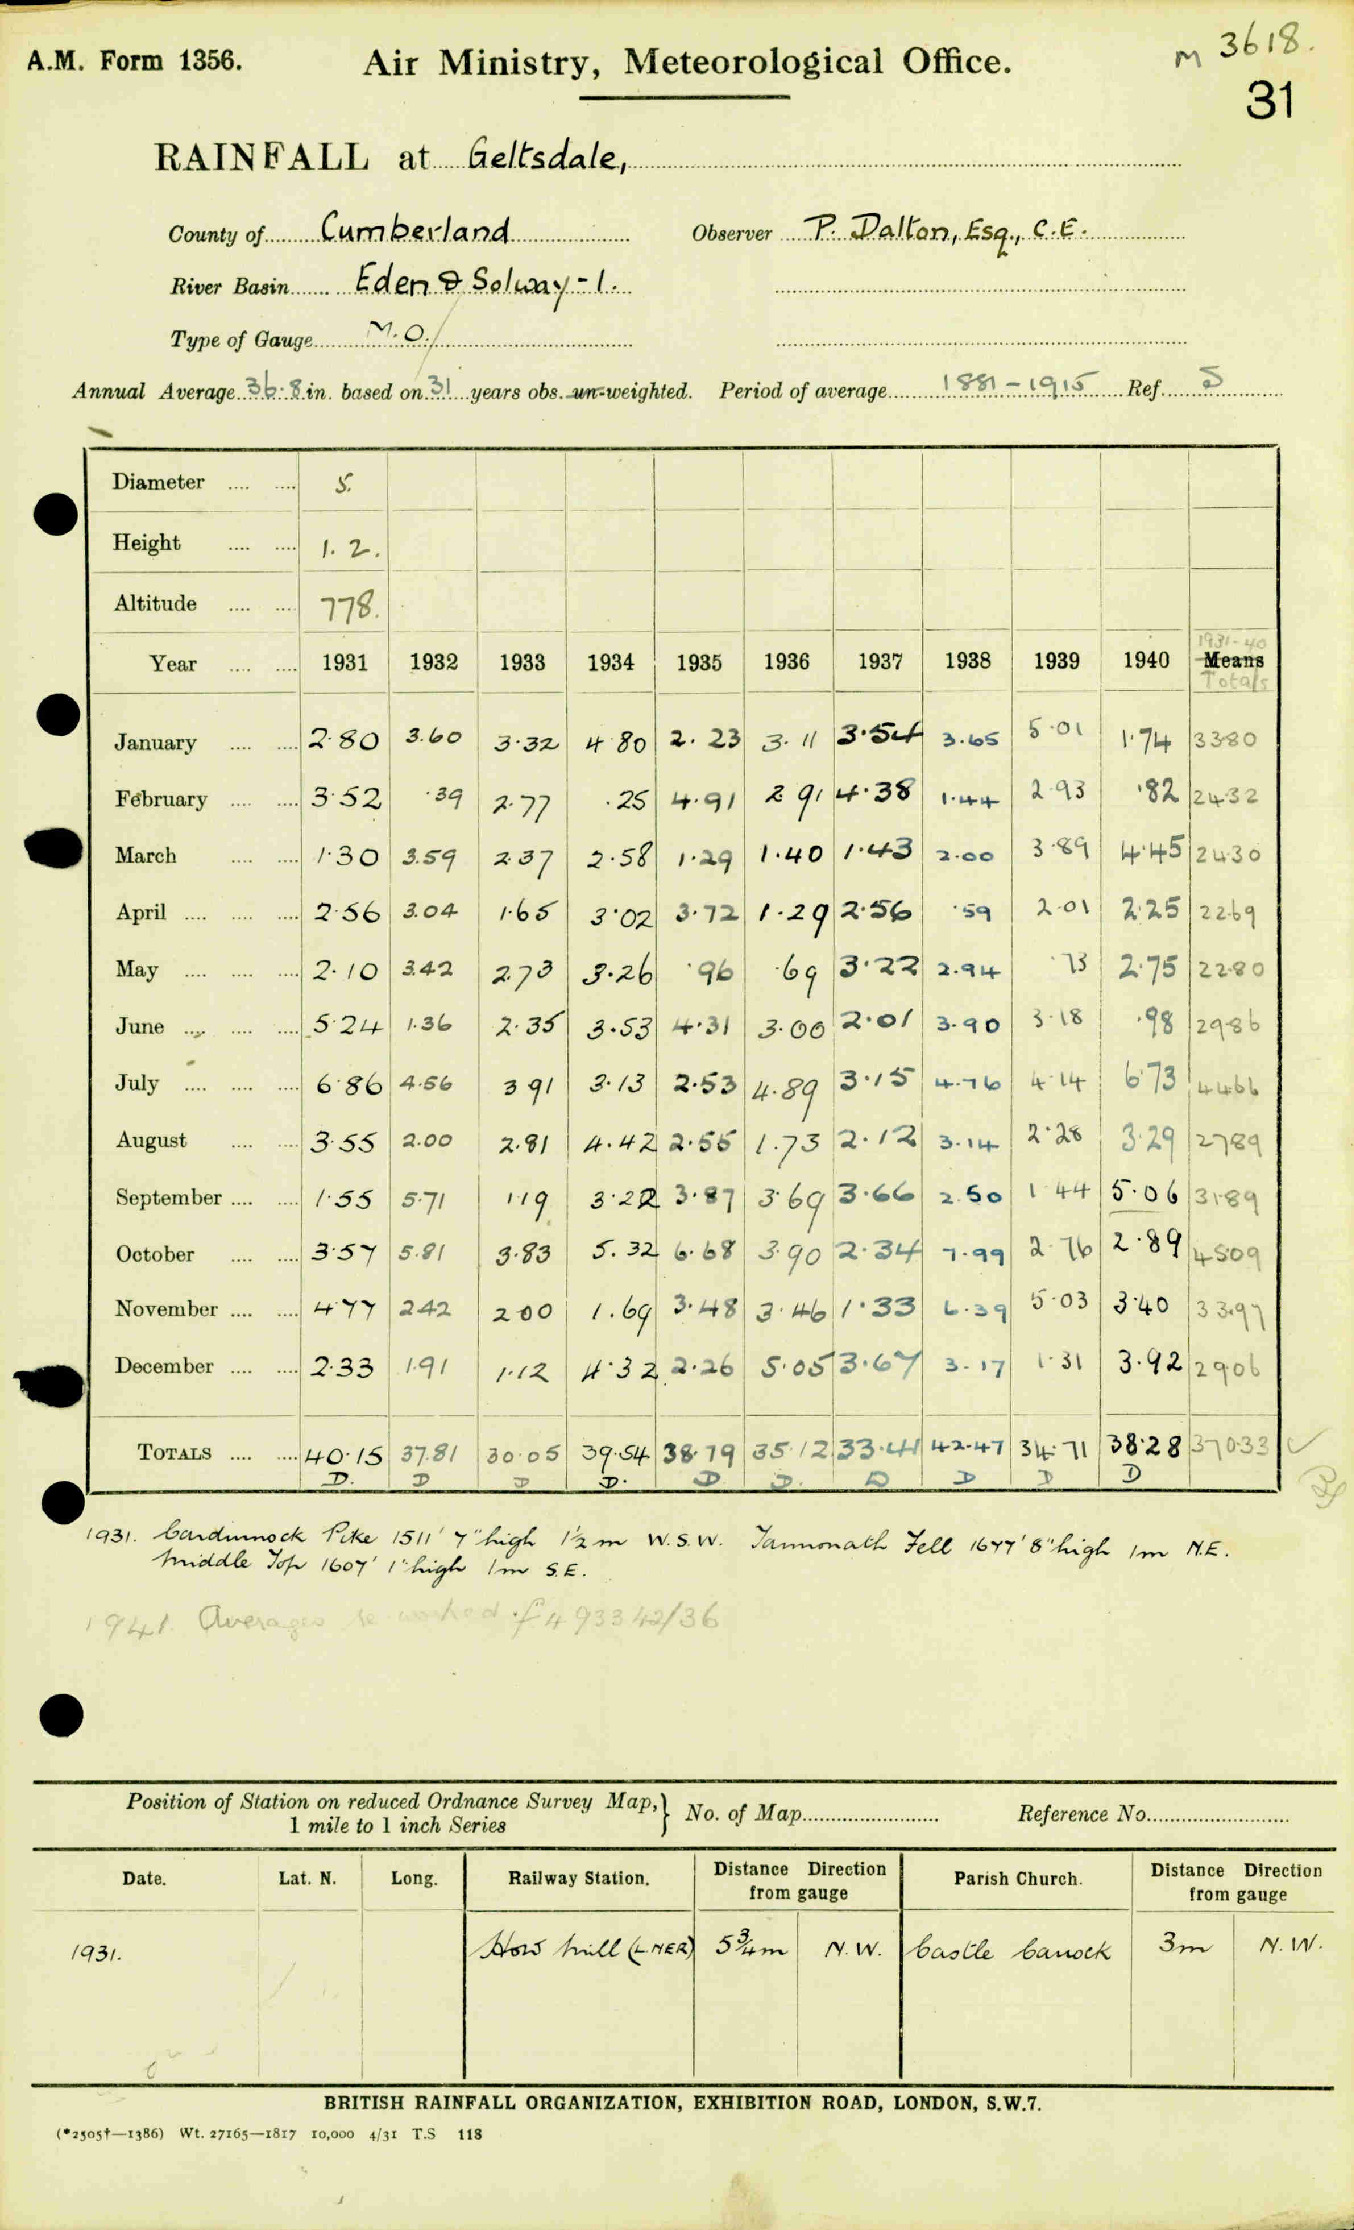 A.M. Form 1356. Air Ministry, Meteorological Office. M 3618.
31
RAINFALL at Geltsdale,
County of Cumberland Observer P. Dalton, Esq., C.E.
River Basin Eden & Solway-1.
Type of Gauge M.O.
Annual Average 36.8 in. based on 31 years obs. un-weighted. Period of average 1881-1915 Ref. S
Diameter 5.
Height 1. 2.
Altitude 778.
1931-40
Year 1931 1932 1933 1934 1935 1936 1937 1938 1939 1940 Means
Totals
January 2.80 3.60 3.32 4 80 2.23 3.11 3.54 3.65 5.01 1.74 33.80
February 3.52 .39 2.77 .25 4.91 2 91 4.38 1.44 2.93 .82 24.32
March 1.30 3.59 2.37 2.58 1.29 1.40 1.43 2.00 3.89 4.45 24.30
April 2.56 3.04 1.65 3.02 3.72 1.29 2.56 .59 2.01 2.25 22.69
May 2.10 3.42 2.73 3.26 .96 .69 3.22 2.94 .73 2.75 22.80
June 5.24 1.36 2.35 3.53 4.31 3.00 2.01 3.90 3.18 .98 29.86
July 6.86 4.56 3 91 3.13 2.53 4.89 3.15 4.76 4.14 6.73 44.66
August 3.55 2.00 2.81 4.42 2.55 1.73 2.12 3.14 2.28 3.29 27.89
September 1.55 5.71 1.19 3.22 3.87 3.69 3.66 2.50 1.44 5.06 31.89
October 3.57 5.81 3.83 5.32 6.68 3.90 2.34 7.99 2.76 2.89 45.09
November 4.77 2.42 2.00 1.69 3.48 3.46 1.33 6.39 5.03 3.40 33.97
December 2.33 1.91 1.12 4.32 2.26 5.05 3.67 3.17 1.31 3.92 29.06
TOTALS 40.15 37.81 30.05 39.54 38.79 35.12 33.41 42.47 34.71 38.28 370.33
D. D D D. D D. D D D D
1931. Cardunnock Pike 1511' 7" high 1½ m W.S.W. Tarnmonath Fell 1677' 8" high 1m N.E.
Middle Top 1607' 1" high 1m S.E.
1941. Averages re worked f 493342/36
Position of Station on reduced Ordnance Survey Map, 1 mile to 1 inch Series } No. of Map Reference No.
Date. Lat. N. Long. Railway Station. Distance Direction from gauge Parish Church. Distance Direction from gauge
1931. How Mill (LNER) 5¾m N.W. Castle Carrock 3m N.W.
BRITISH RAINFALL ORGANIZATION, EXHIBITION ROAD, LONDON, S.W.7.
(*2505†—1386) Wt. 27165—1817 10,000 4/31 T.S 118